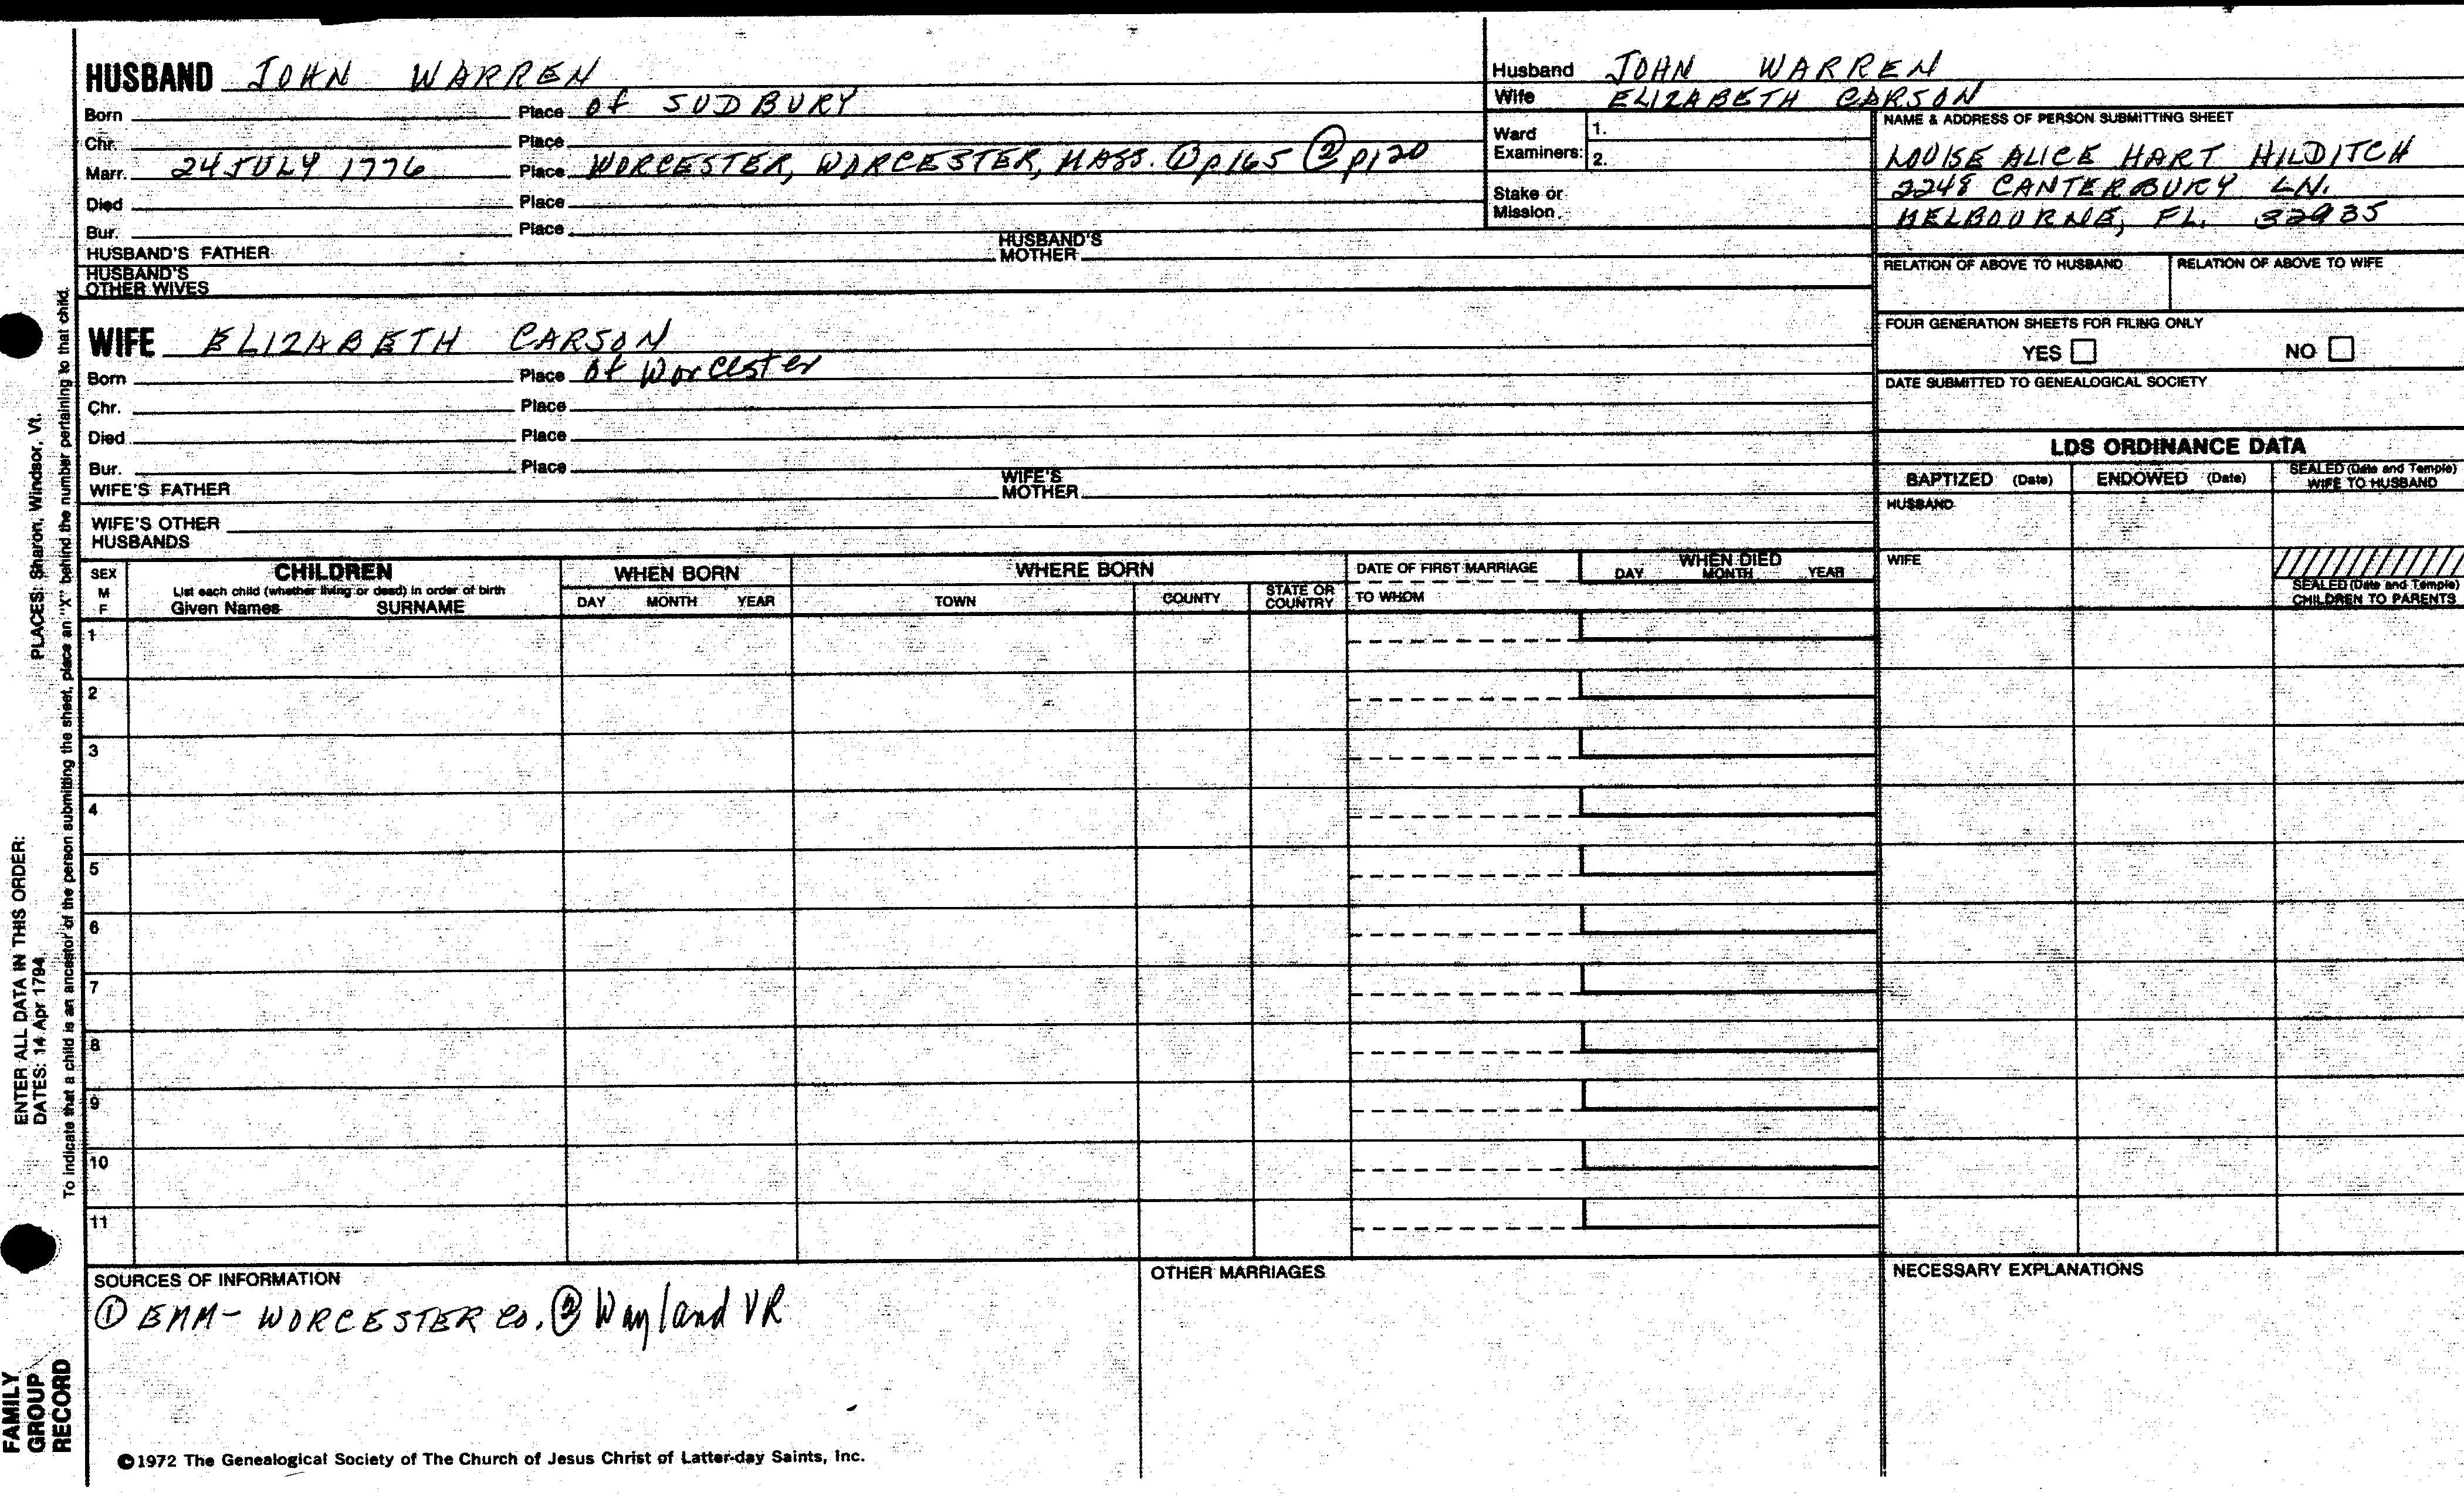 HUSBAND JOHN WARREN
Born Place of SUDBURY
Chr. Place
Marr. 24 JULY 1776 Place WORCESTER, WORCESTER, MASS. ① p165 ② p120
Died Place
Bur. Place
HUSBAND'S FATHER HUSBAND'S MOTHER
HUSBAND'S OTHER WIVES
Husband JOHN WARREN
Wife ELIZABETH CARSON
Ward Examiners: 1.
2.
Stake or Mission
NAME & ADDRESS OF PERSON SUBMITTING SHEET
LOUISE ALICE HART HILDITCH
2248 CANTERBURY LN.
MELBOURNE, FL. 32935
RELATION OF ABOVE TO HUSBAND RELATION OF ABOVE TO WIFE
FOUR GENERATION SHEETS FOR FILING ONLY
YES NO
DATE SUBMITTED TO GENEALOGICAL SOCIETY
WIFE ELIZABETH CARSON
Born Place of Worcester
Chr. Place
Died Place
Bur. Place
WIFE'S FATHER WIFE'S MOTHER
WIFE'S OTHER HUSBANDS
LDS ORDINANCE DATA
BAPTIZED (Date) ENDOWED (Date) SEALED (Date and Temple) WIFE TO HUSBAND
HUSBAND
WIFE
SEALED (Date and Temple) CHILDREN TO PARENTS
SEX M F
CHILDREN
List each child (whether living or dead) in order of birth
Given Names SURNAME
WHEN BORN
DAY MONTH YEAR
WHERE BORN
TOWN COUNTY STATE OR COUNTRY
DATE OF FIRST MARRIAGE
TO WHOM
WHEN DIED
DAY MONTH YEAR
1
2
3
4
5
6
7
8
9
10
11
SOURCES OF INFORMATION
① EMM- WORCESTER CO. ② Wayland VR
OTHER MARRIAGES
NECESSARY EXPLANATIONS
©1972 The Genealogical Society of The Church of Jesus Christ of Latter-day Saints, Inc.
FAMILY
GROUP
RECORD
ENTER ALL DATA IN THIS ORDER:
DATES: 14 Apr 1794 PLACES: Sharon, Windsor, Vt.
To indicate that a child is an ancestor of the person submitting the sheet, place an "X" behind the number pertaining to that child.